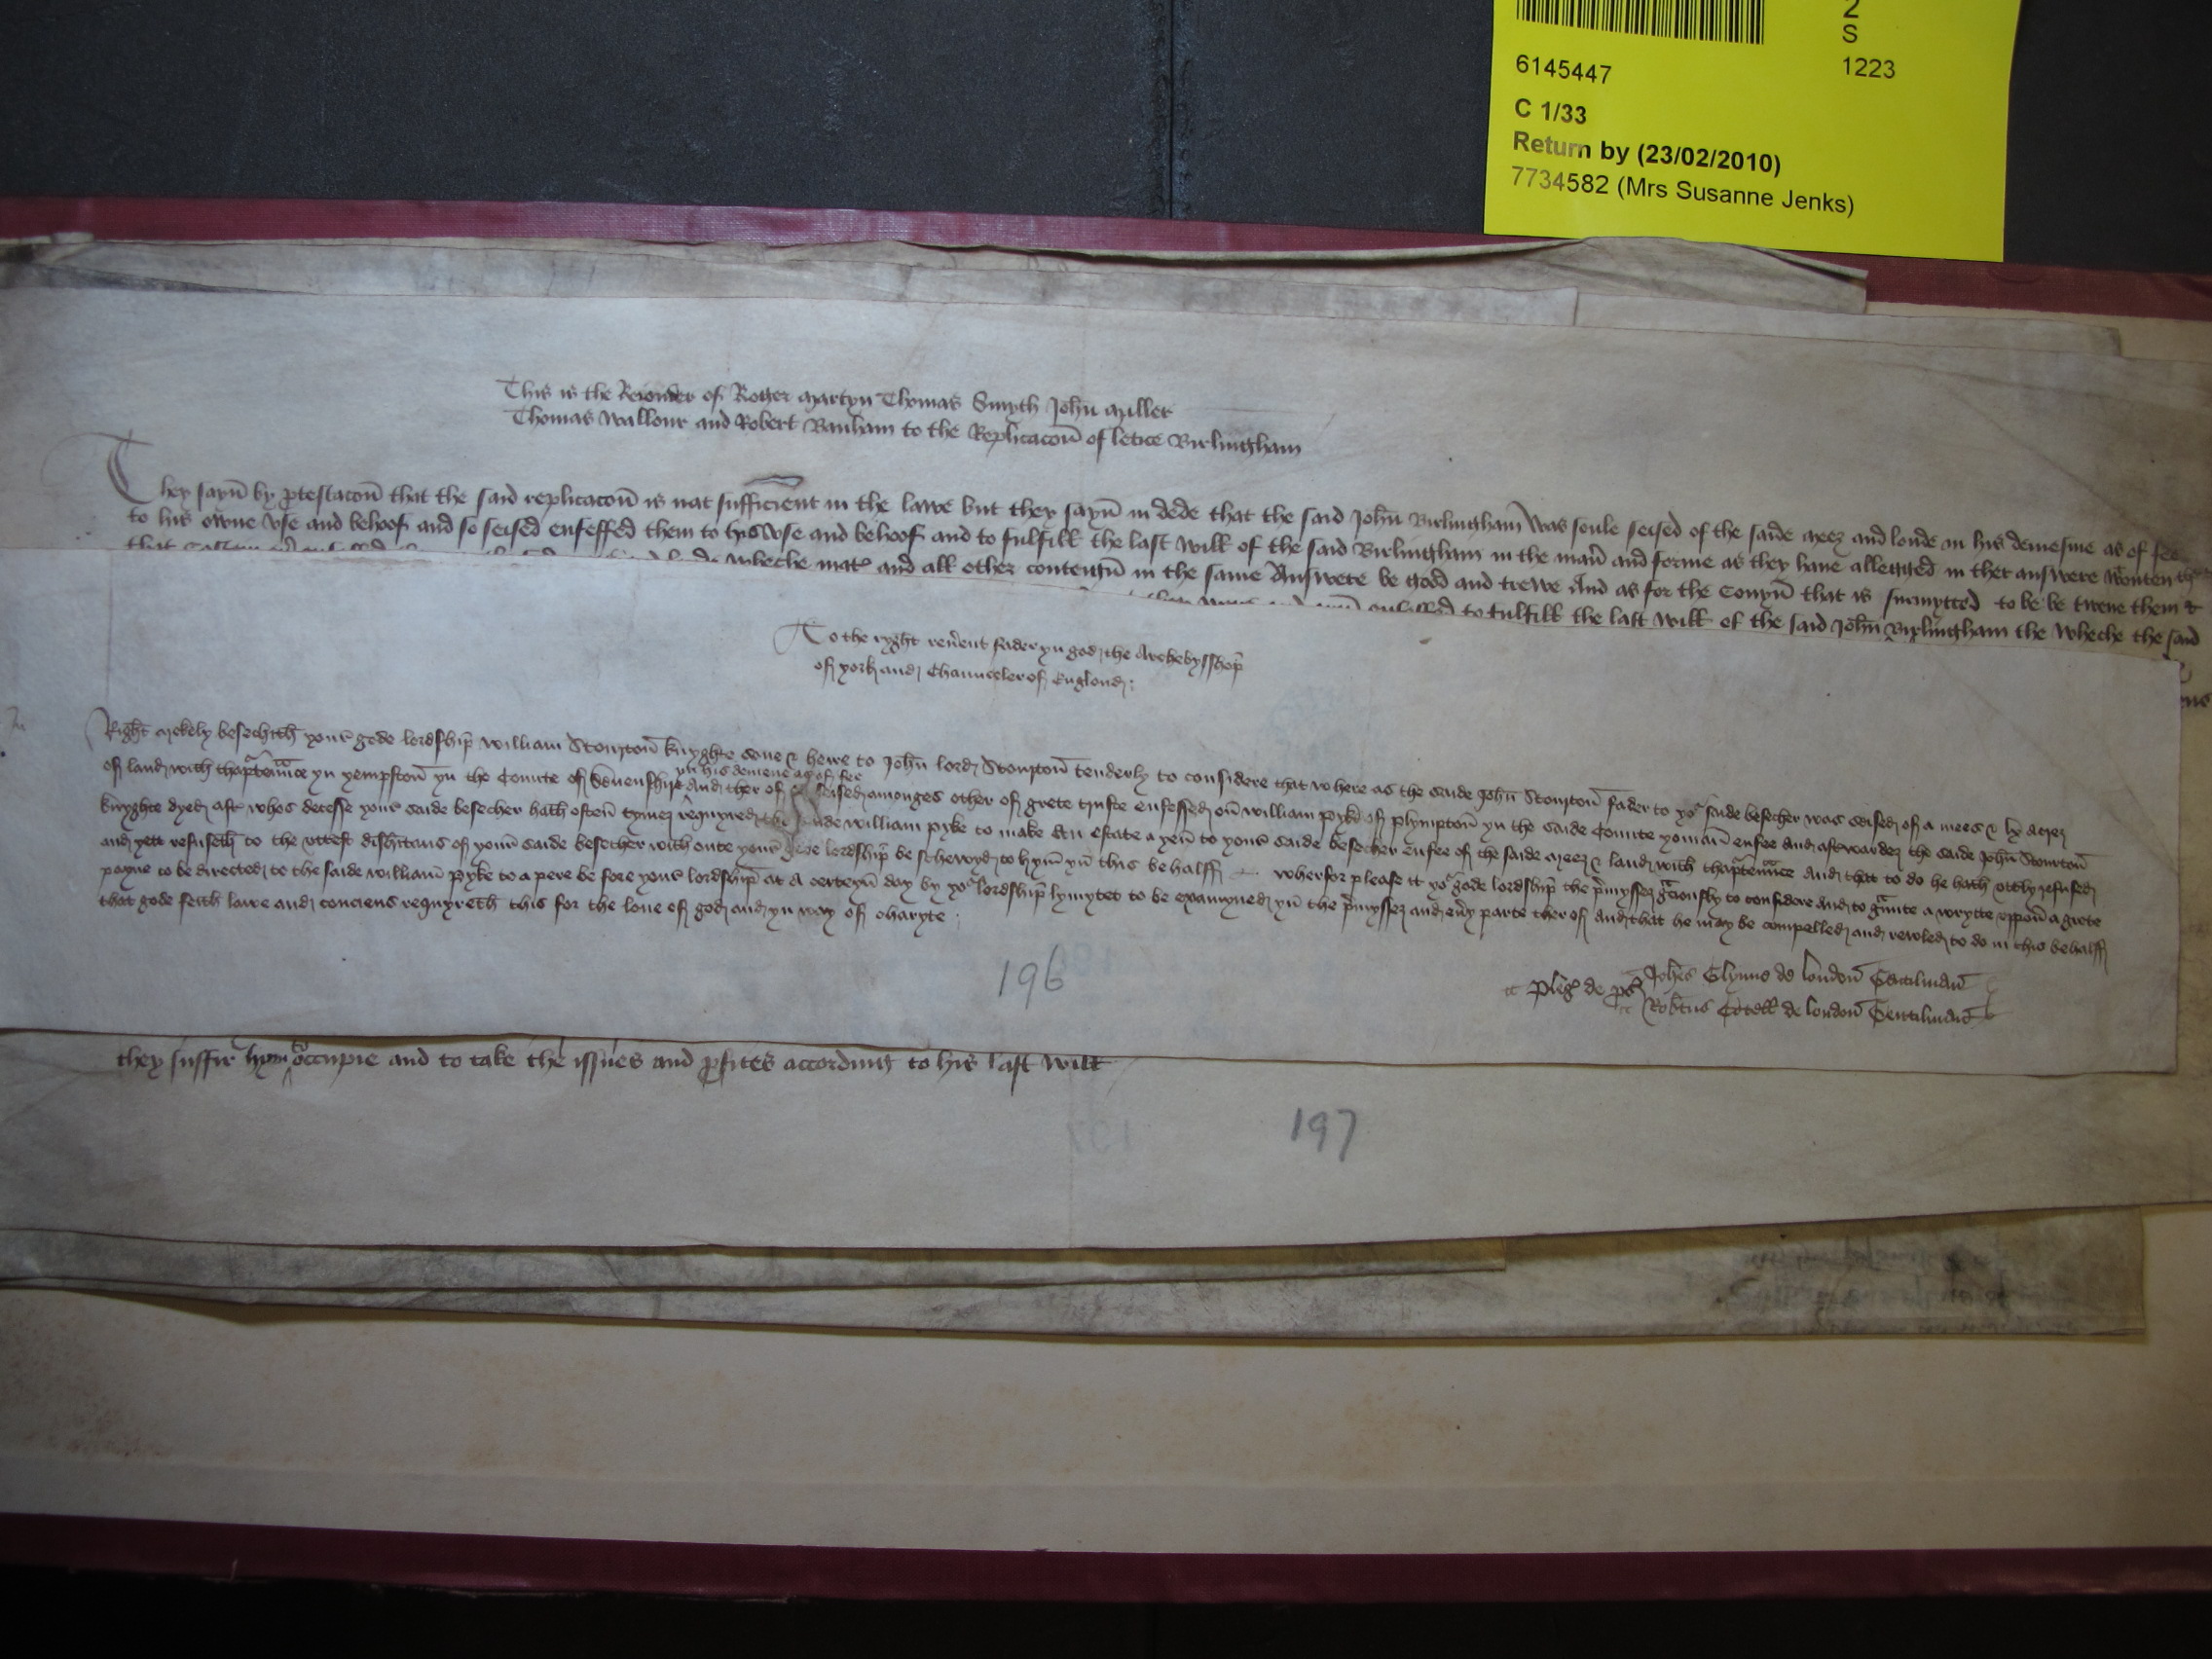 2
S
6145447 1223
C 1/33
Return by (23/02/2010)
7734582 (Mrs Susanne Jenks)
This is the Reioinder of Roger Martyn Thomas Smyth John Miller
Thomas Wallour and Robert Banham to the Replicacon of letice Birlingham
They sayn by ptestacon that the said replicacon is nat sufficient in the lawe but they sayn in dede that the said John Birlingham was soule seised of the saide meez and londe in his demesme as of fee
to his owne vse and behoof and so seised enfeffed them to his vse and behoof and to fulfill the last will of the said Birlingham in the man and forme as they haue allegged in ther answere
wheche mat and all other conteygn in the same Answere be good and trewe And as for the Conyn that is surmytted to be be twene them &
enfeffed to fulfill the last will of the said John Birlingham the wheche the said
To the ryght reuent fader yn god the Archebysshop
of york and Chaunceler of Englond
Right mekely besechith your gode lordship William Stourton knyghte sone & heire to John lord Stourton tenderly to considere that where as the saide John Stourton fader to yor saide besecher was seised of a mees & lx acrez
of land with thapptenaunce yn yempston yn the Comite of Deuenshire yn his demene as of fee And ther of seised amonges other of grete truste enfeffed on William pyke of plympton yn the saide Comite yoman enfee And aftwardez the saide John Stourton
knyghte dyed aft whos decesse your saide besecher hath often tymez requyred the saide William pyke to make An estate a yen to your saide besecher enfee of the saide meez & land with thapptenaunce And that to do he hath vttly refused
and yett refuseth to the vttest disheritans of your saide besecher with oute your gode lordship be schewyd to hym yn this behalff wherfor please it yor gode lordship the pmyssez graciously to considere And to graunte a wrytte vppon a grete
payne to be directed to the saide William pyke to a pere be fore your lordship at A certeyn day by yor lordship lymytet to be examyned yn the pmyssez and euy parte ther of And that he may be compelled and rewled to do in this behalff
that gode feith lawe and conciens requyreth this for the loue of god and yn way of charyte
196
pleg de ps
Johes Glynne de london Gentilman
Robtus Cotell de london Gentilman
they suffir hym to occupie and to take the issues and pfites according to his last will
197